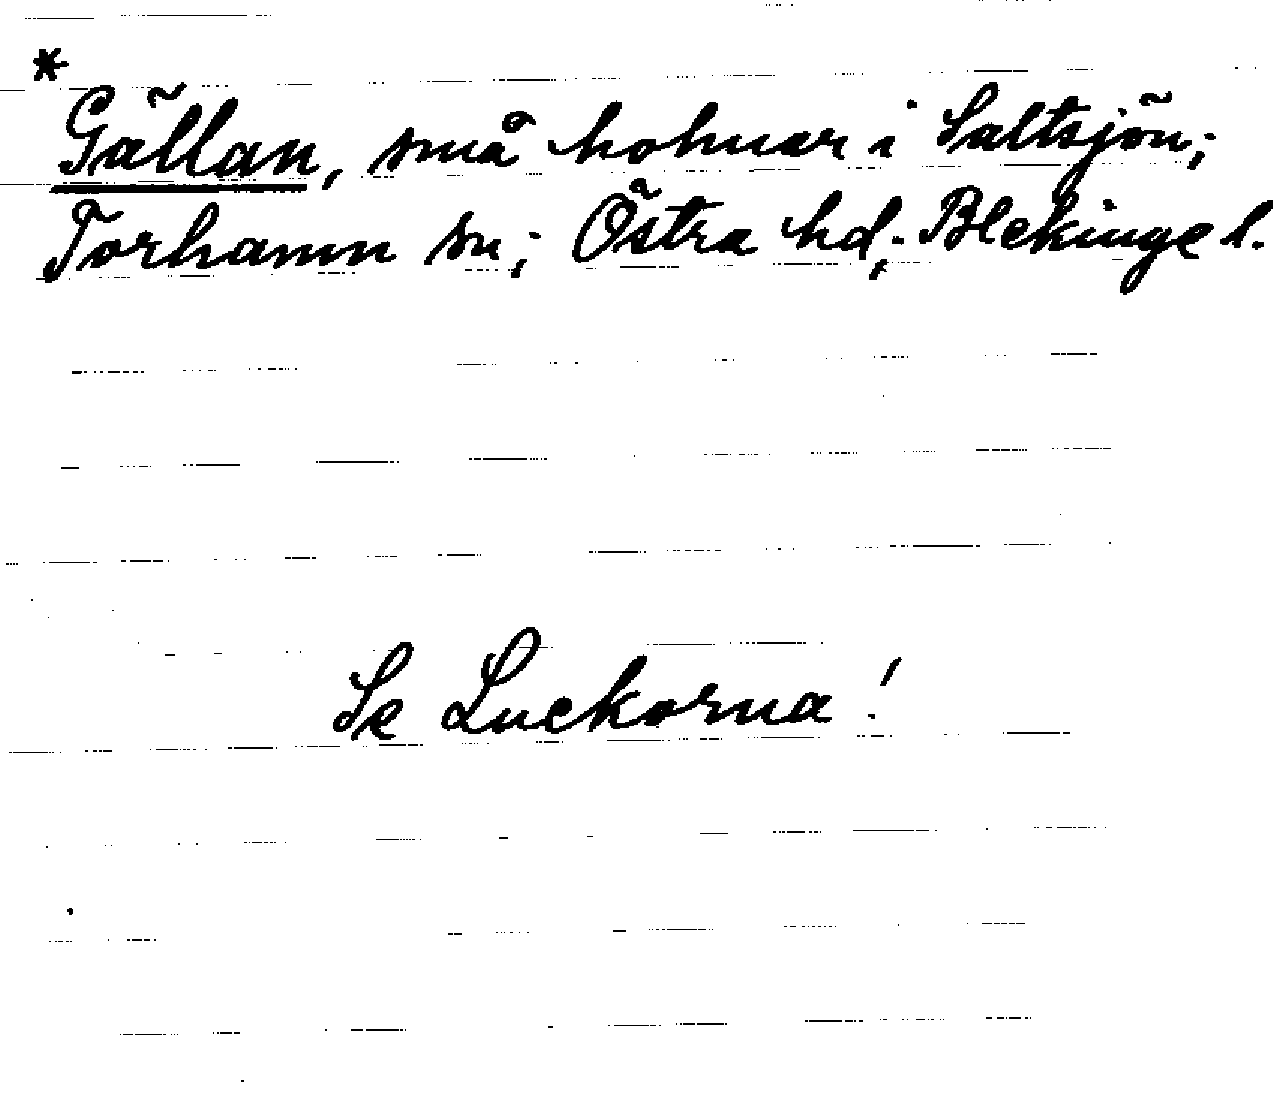 *
Gällan, små holmar i Saltsjön;
Torhamn sn; Östra hd; Blekinge l.
Se Luckorna!